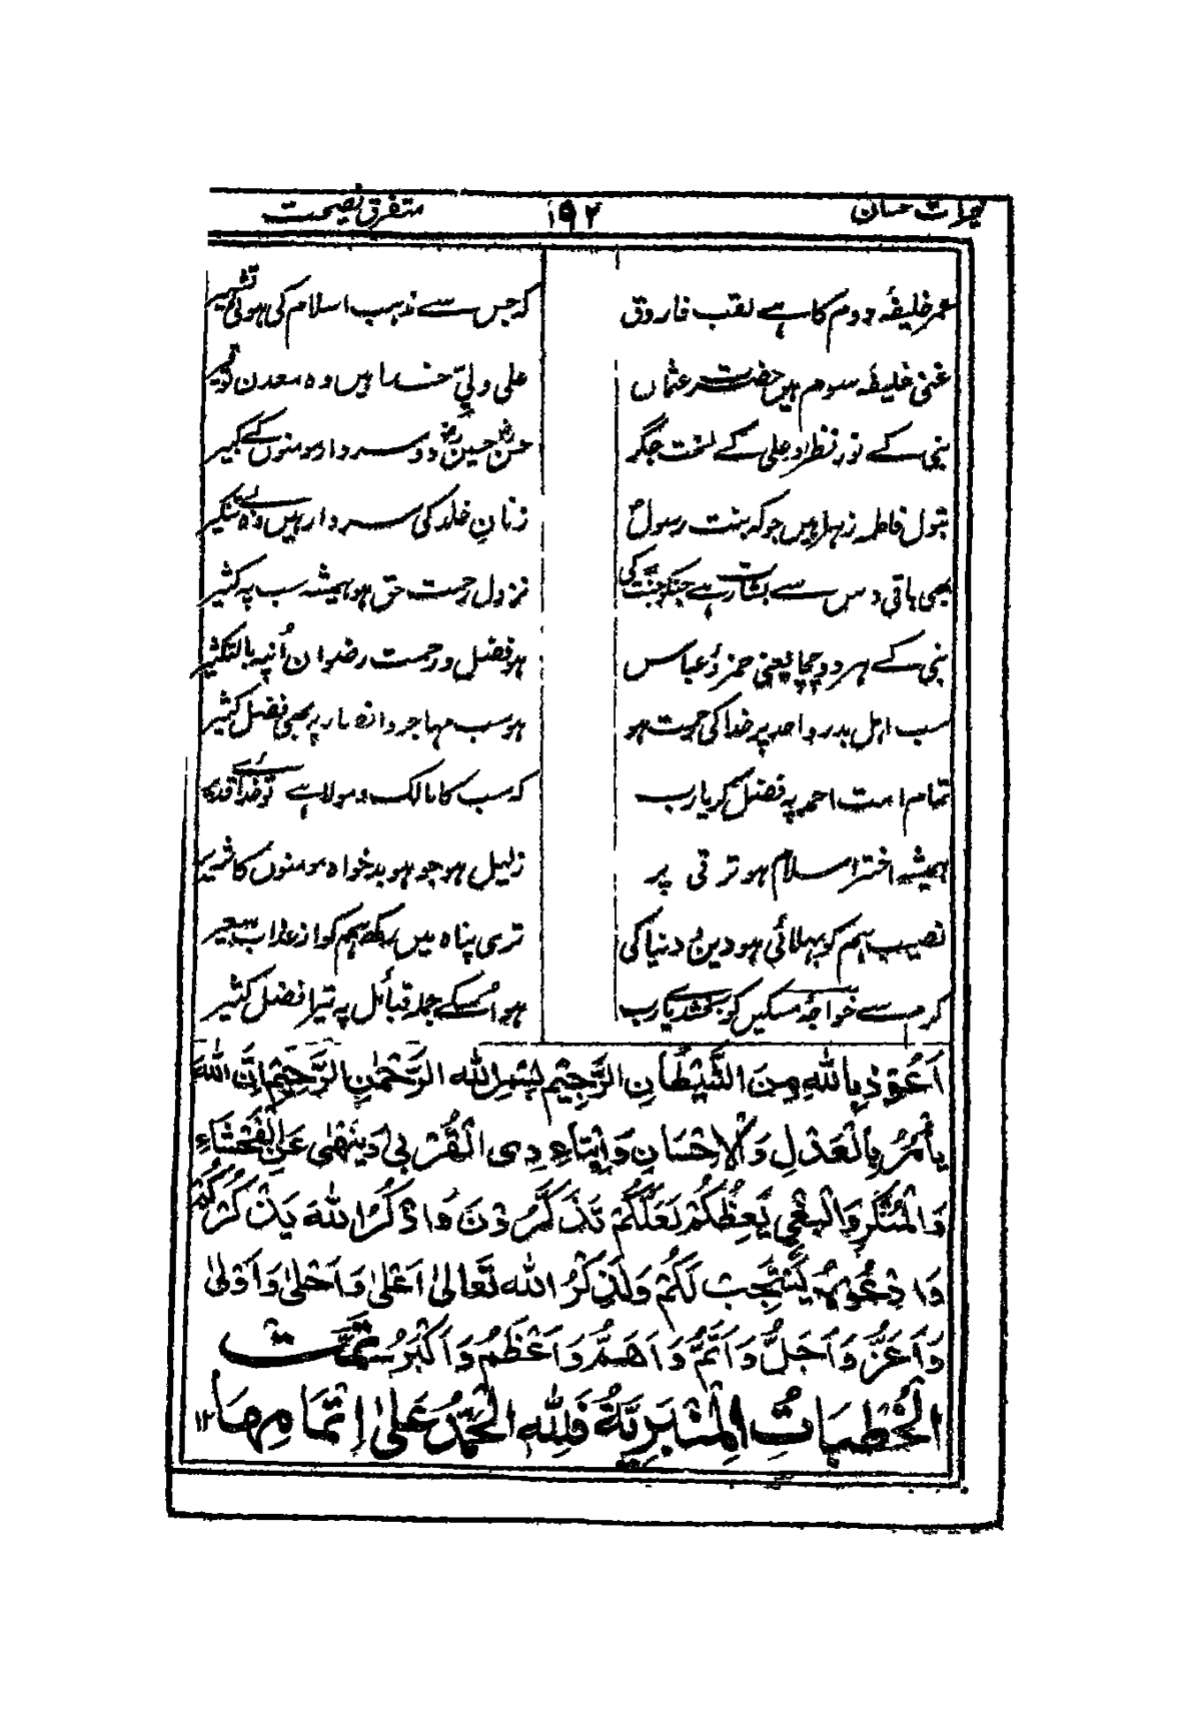 خیرات حسان ۱۹۲ متفرق نصیحت
عمر خلیفۂ دوم کا ہے لقب فاروق کہ جس سے مذہب اسلام کی ہوئی تشہیر
غنی خلیفہ سوم ہیں حضرت عثماں علی ولیِّ خدا ہیں وہ معدن توقیر
نبی کے نور نظر اور علی کے لخت جگر حسنؓ حسینؓ دو سردار مومنوں کے کبیر
بتول فاطمہ زہرا ہیں جو کہ بنت رسولؐ زنانِ خلد کی سردار ہیں وہ بے نکیر
بھی باقی دس سے بشارت ہے جنکو جنّت کی نزول رحمت حق ہو ہمیشہ سب پہ کثیر
نبی کے ہر دو چچا یعنی حمزہؓ و عباس ہو فضل و رحمت رضوان اُنپہ بالتکثیر
سب اہل بدر و احد پر خدا کی رحمت ہو ہو سب مہاجر و انصار پر بھی فضل کثیر
تمام امت احمد پہ فضل کر یارب کہ سب کا مالک و مولا ہے تو خدائے قدیر
ہمیشہ اختر اسلام ہو ترقی پر ذلیل ہو جو ہو بدخواہ مومنوں کا شریر
نصیب ہم کو بھلائی ہو دین و دنیا کی تری پناہ میں رکھ ہم کو از عذاب سعیر
کرم سے خواجۂ مسکیں کو بخشدے یارب ہو اُسکے جملہ قبائل پہ تیرا فضل کثیر
اَعُوْذُ بِاللّٰهِ مِنَ الشَّيْطَانِ الرَّجِيْمِ بِسْمِ اللّٰهِ الرَّحْمٰنِ الرَّحِيْمِ اِنَّ اللّٰهَ
يَأْمُرُ بِالْعَدْلِ وَالْاِحْسَانِ وَاِيْتَاءِ ذِى الْقُرْبىٰ وَيَنْهٰى عَنِ الْفَحْشَاءِ
وَالْمُنْكَرِ وَالْبَغْيِ يَعِظُكُمْ لَعَلَّكُمْ تَذَكَّرُوْنَ وَاذْكُرُوا اللّٰهَ يَذْكُرْكُمْ
وَادْعُوْهُ يَسْتَجِبْ لَكُمْ وَلَذِكْرُ اللّٰهِ تَعَالىٰ اَعْلىٰ وَاَحْلىٰ وَاَوْلىٰ
وَاَعَزُّ وَاَجَلُّ وَاَتَمُّ وَاَهَمُّ وَاَعْظَمُ وَاَكْبَرُ تَمَّتْ
الْخُطْبَاتُ الْمِنْبَرِيَّةُ فَلِلّٰهِ الْحَمْدُ عَلىٰ اِتْمَامِهَا ۱۲